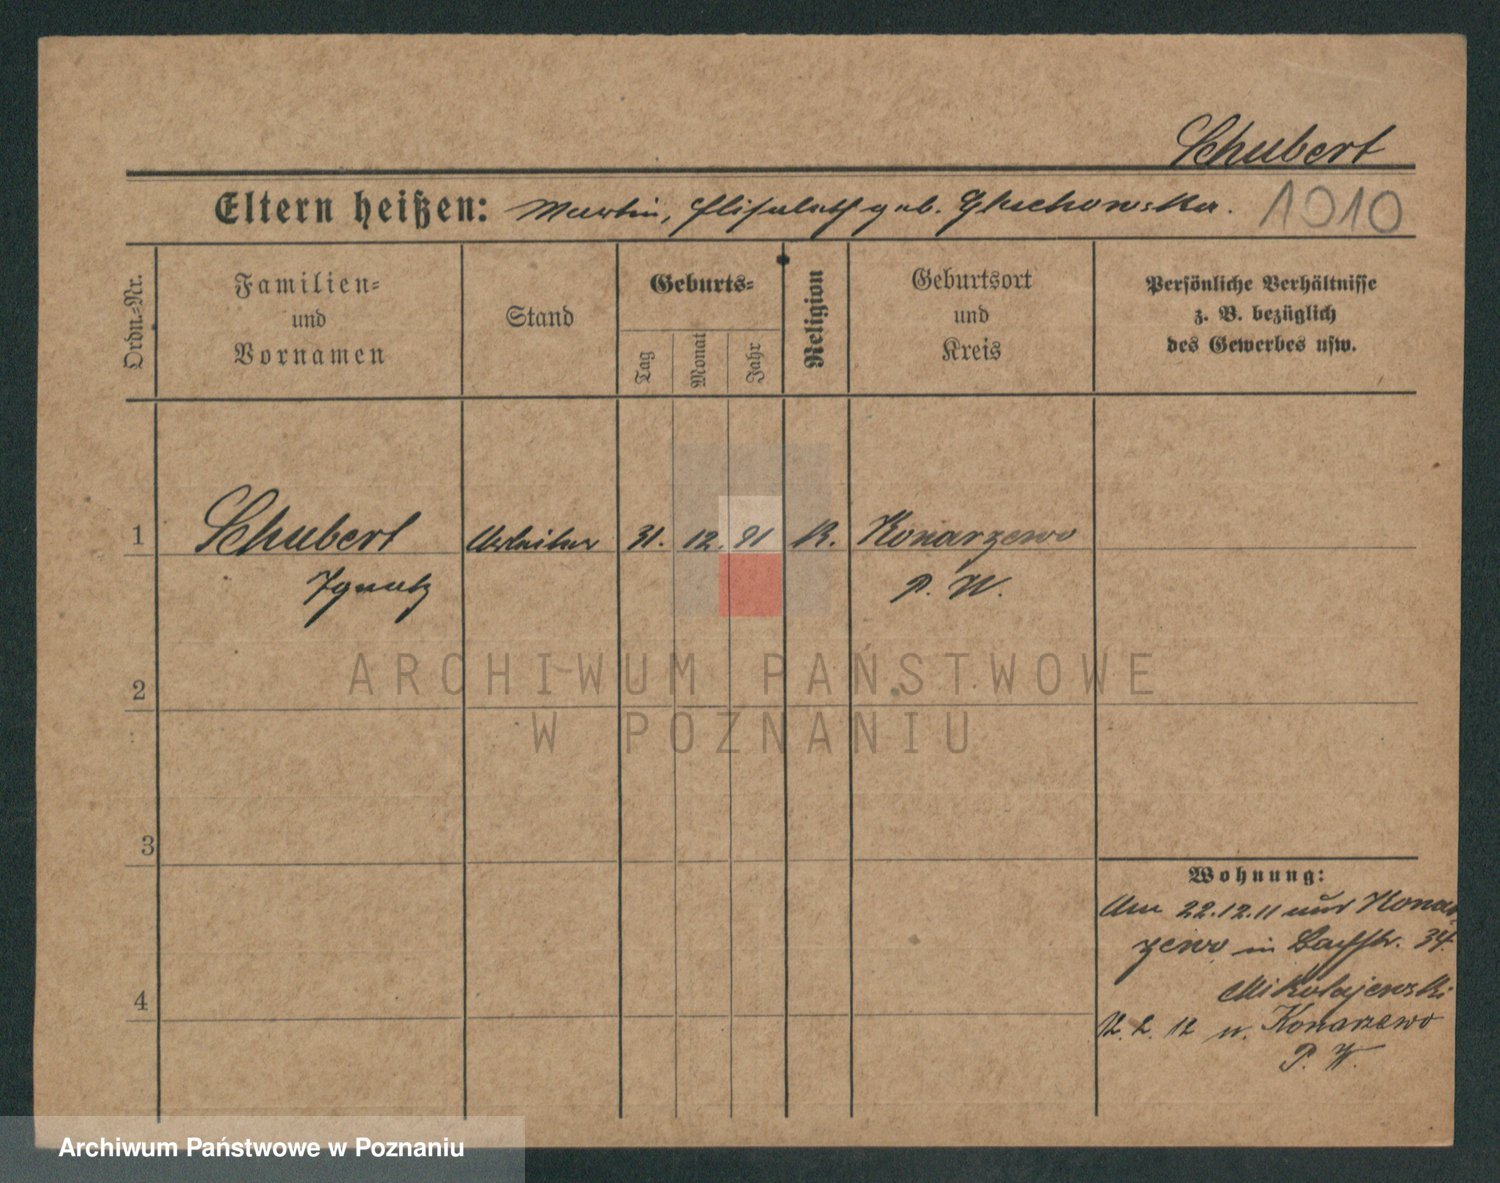 Schubert
Eltern heißen: Martin, Elisabeth geb. Gluchowska.
1010
Ordn.-Nr.
Familien-
und
Vornamen
Stand
Geburts-
Tag
Monat
Jahr
Religion
Geburtsort
und
Kreis
Persönliche Verhältnisse
z. B. bezüglich
des Gewerbes usw.
1
Schubert
Arbeiter
31.
12.
91
K.
Konarzewo
Ignatz
P. W.
ARCHIWUM PAŃSTWOWE
W POZNANIU
2
3
4
Wohnung:
Am 22.12.11 aus Konar
zewo in Bachstr. 34.
Mikolajewski
2. 12 n. Konarzewo
P. W.
Archiwum Państwowe w Poznaniu